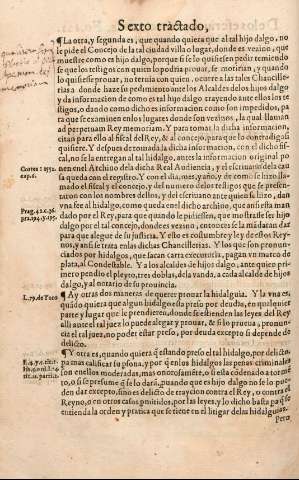 Sexto tractado,
¶La otra, y segunda es, que quando quiera que al tal hijo dalgo, no
le pide el Concejo de la tal ciudad villa o lugar, donde es vezino, que
muestre como es hijo dalgo, porque si se lo quisiessen pedir temiendo
se que los testigos con quien lo podria prouar, se moririan, y quando
lo quisiesse prouar, no ternia con quien, ocurre a las tales Chancille-
rias a donde haze su pedimiento ante los Alcaldes delos hijos dalgo
y da informacion de como es el tal hijo dalgo trayendo ante ellos los te-
stigos, o dado como dichos es informacion como son impedidos, pa
ra que se examinen enlos lugares donde son vezinos, la qual llaman
ad perpetuam Rey memoriam. Y para tomar la dicha informacion,
citan para ello al fiscal del Rey, & al concejo, para que lo contradiga si
quisiere. Y despues de tomada la dicha informacion, con el dicho fis-
cal, no se la entregan al tal hidalgo, antes la informacion original po
nen enel Archiuo dela dicha Real Audiencia, y el escriuano dela cau
sa queda con el registro. Y con el dia, mes, y año, y de como se hizo lla
mado el fiscal y el concejo, y del numero delos testigos que se presen-
taron con los nombres dellos, y del escriuano ante quien se hizo, dan
fee al tal hidalgo, como queda enel dicho archiuo, que assi esta man
dado por el Rey, para que quando le pidiessen, que mostrasse ser hijo
dalgo por el tal concejo, donde es vezino, entonces se la mãdaran dar
para que alegue de su justicia. Y esto es costumbre y ley destos Rey-
nos, y ansi se trata enlas dichas Chancillerias. Y los que son pronun-
ciados por hidalgos, que sacan carta executoria, pagan vn marco de
plata, al Condestable. Y a los alcaldes de hijos dalgo, ante quien pri-
mero pendio el pleyto, tres doblas, dela vanda, a cada alcalde de hijos
dalgo, y al notario de su prouincia.
¶Ay otras dos maneras de querer prouar la hidalguia. Y la vna es
quãdo quiera que algun hidalgo esta preso por deuda, en qualquier
parte y lugar que le prendieren, donde se estienden las leyes del Rey
alli ante el tal juez lo puede alegar y prouar, & si lo prueua, pronun-
cie el tal juez, no poder estar preso, por deuda excepto si depende de
delicto.
¶Y otra es, quando quiera q̃ es tando preso el tal hidalgo, por delicto,
pa mas calificar su p̃sona, y por q̃ enlos hidalgos las penas criminales
son enellos moderadas, mas onorosamẽte, o si esta codenado a torme
to, o si se presume q̃ se lo darã, puando que es hijo dalgo no se lo pue-
den dar excepto, sino es delicto de traycion contra el Rey, o contra el
Reyno, o en otros casos pmitidos, por las leyes, y lo dicho basta pa q̃ se
entienda la orden y pratica que se tiene en el litigar delas hidalguias.
Pero
Cortes : 1552.
cap. 6.
Prag. 42. c. 36.
pra. 194. y. 195.
L. 79. de Toro